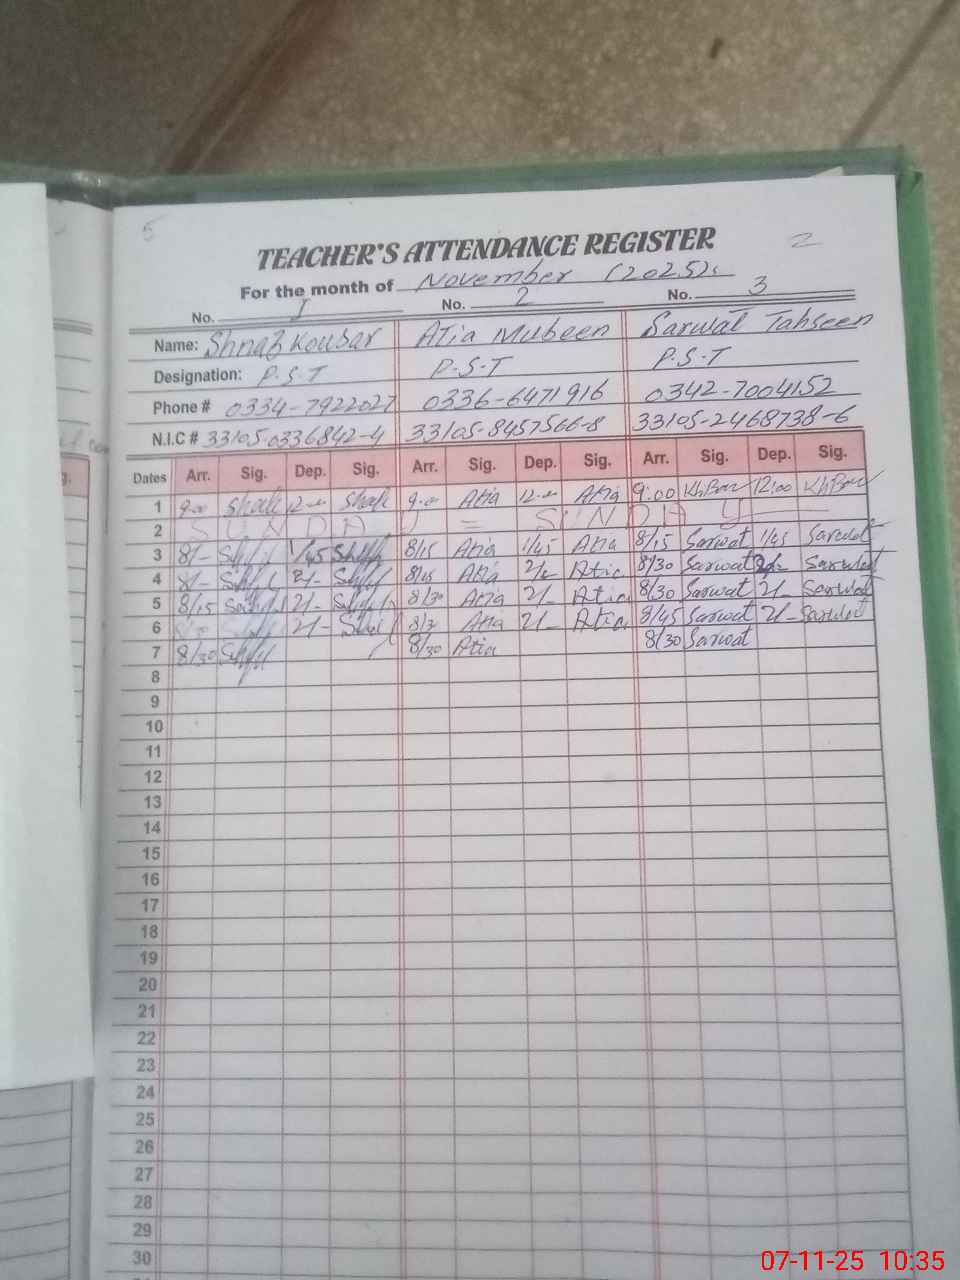 5
2
TEACHER'S ATTENDANCE REGISTER
For the month of November (2025).
No. 1 No. 2 No. 3
Name: Shnaz Kousar Atia Mubeen Sarwat Tahseen
Designation: P.S.T P.S.T P.S.T
Phone # 0334-7922027 0336-6471916 0342-7004152
N.I.C # 33105-0336842-4 33105-8457566-8 33105-2468738-6
Dates Arr. Sig. Dep. Sig. Arr. Sig. Dep. Sig. Arr. Sig. Dep. Sig.
1 9-00 12-00 9-00 Atia 12-00 Atia 9:00 12:00
2 SUNDAY = SUNDAY
3 8/- 1/45 8/15 Atia 1/45 Atia 8/15 Sarwat 1/45 Sarwat
4 8/- 2/- 8/15 Atia 2/- Atia 8/30 Sarwat Sarwat
5 8/15 2/- 8/30 Atia 2/- Atia 8/30 Sarwat 2/- Sarwat
6 2/- Atia 2/- Atia 8/45 Sarwat 2/- Sarwat
7 8/30 8/30 Atia 8/30 Sarwat
8
9
10
11
12
13
14
15
16
17
18
19
20
21
22
23
24
25
26
27
28
29
30
07-11-25 10:35